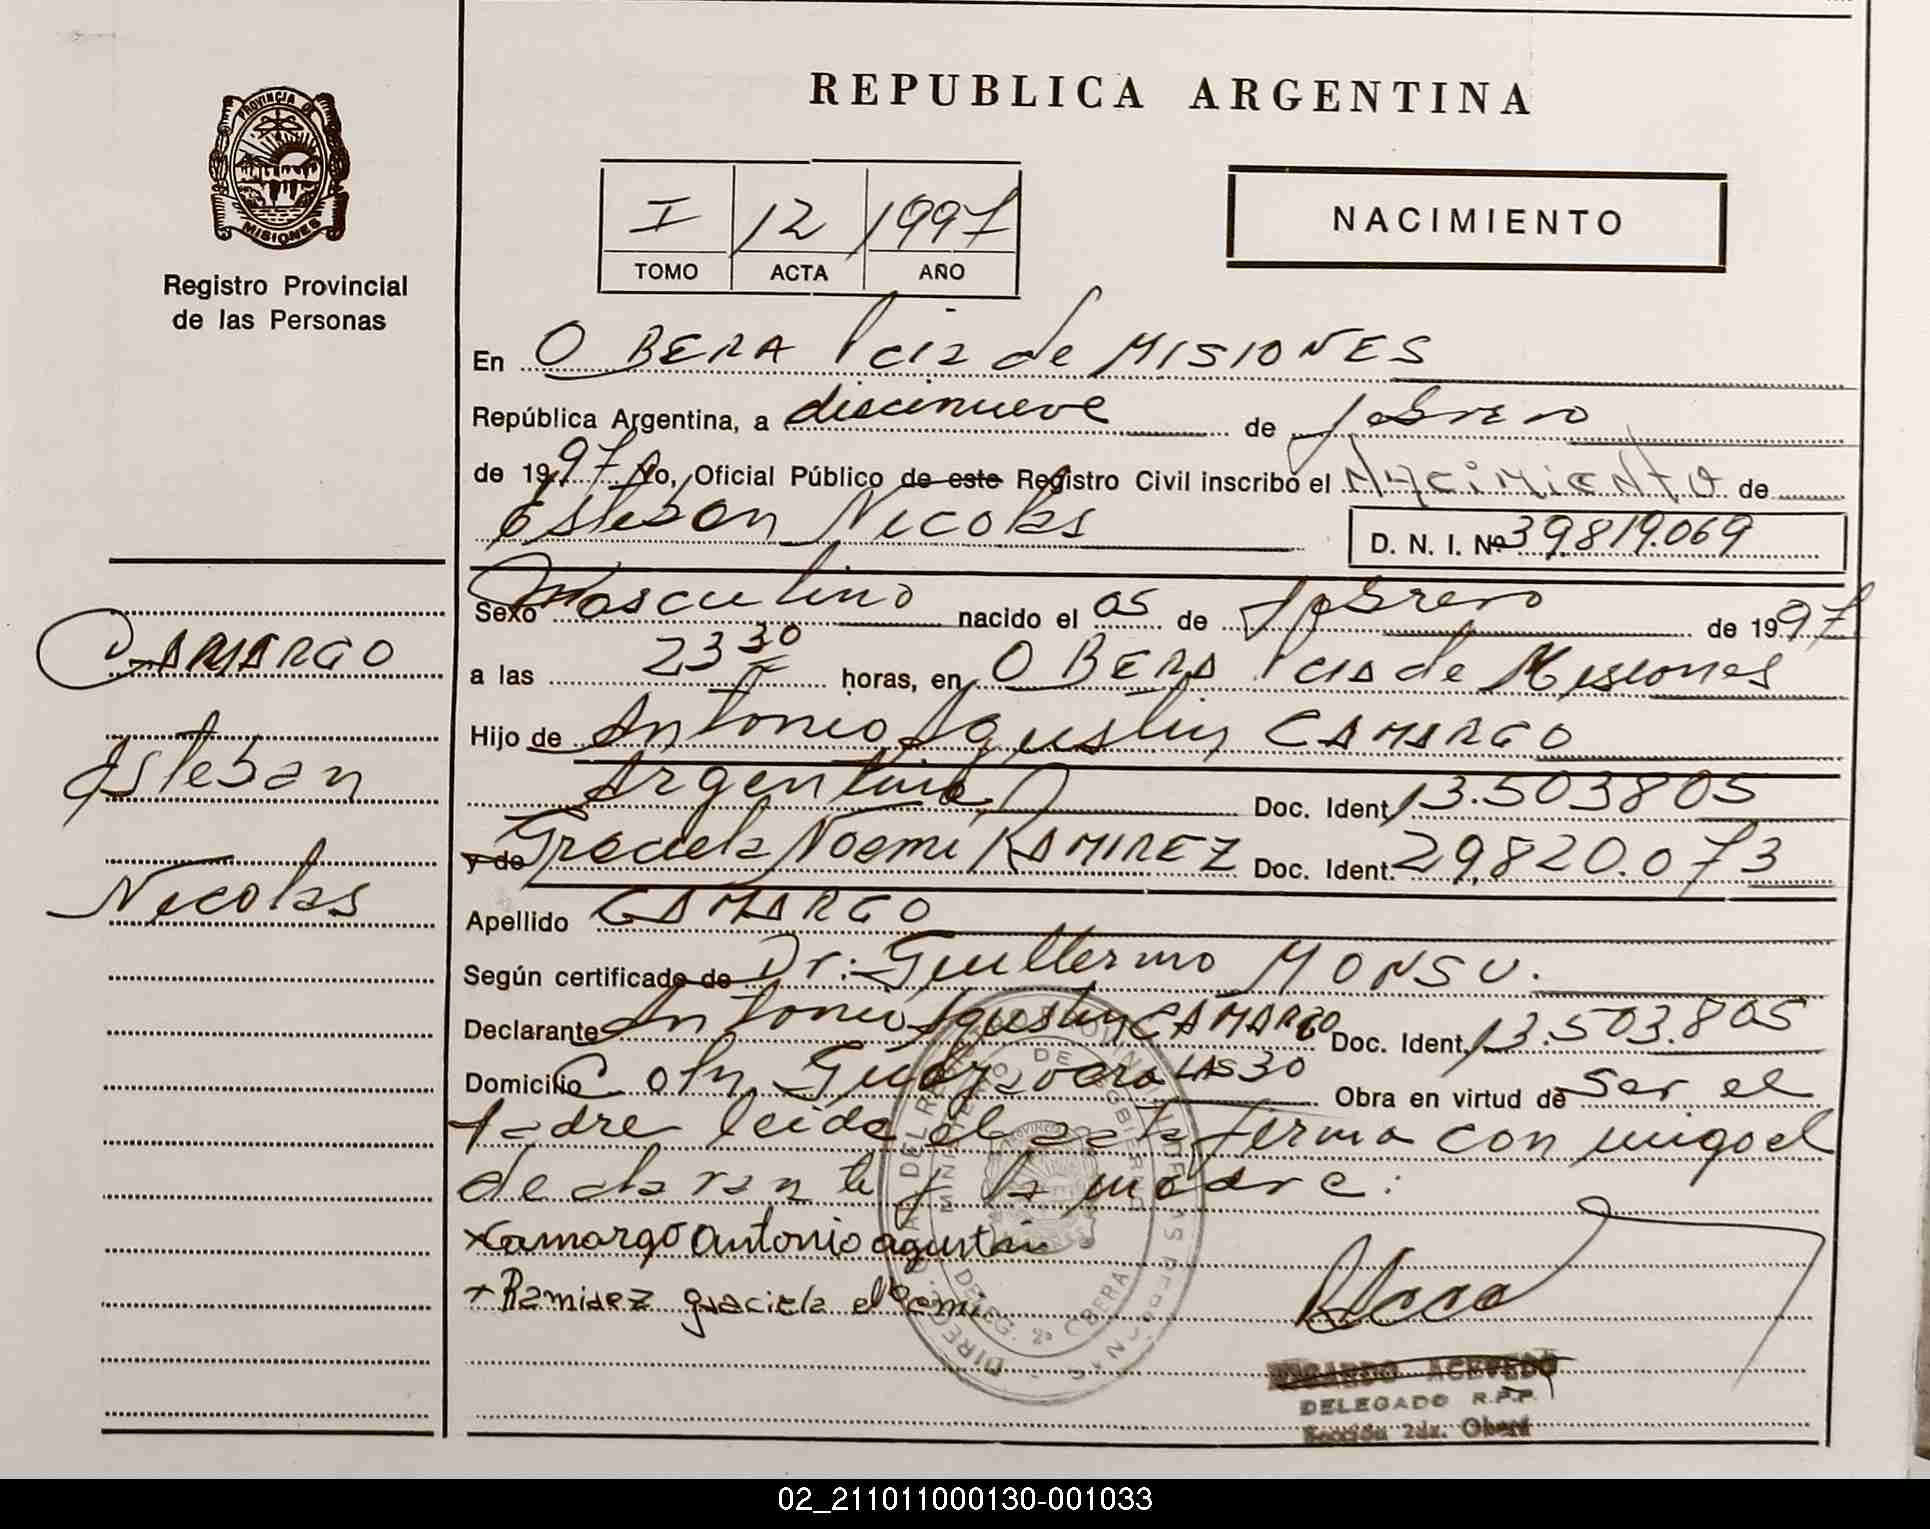 REPUBLICA ARGENTINA
PROVINCIA DE
MISIONES
Registro Provincial
de las Personas
I 12 1997
TOMO ACTA AÑO
NACIMIENTO
En OBERA Pcia de MISIONES
República Argentina, a diecinueve de febrero
de 1997 Yo, Oficial Público de este Registro Civil inscribo el NACIMIENTO de
Esteban Nicolas D. N. I. Nº 39.819.069
Sexo Masculino nacido el 05 de febrero de 1997
a las 23 30 horas, en OBERA Pcia de Misiones
Hijo de Antonio Agustin CAMARGO
Argentina Doc. Ident. 13.503805
y de Graciela Noemi RAMIREZ Doc. Ident. 29,820.073
Apellido CAMARGO
Según certificado de Dr: Guillermo MONSU.
Declarante Antonio Agustin CAMARGO Doc. Ident. 13.503.805
Domicilio Coln. LAS 30 Obra en virtud de Ser el
padre leida el acta firma con migo el
declarante y la madre:
x Camargo Antonio agustin
+ Ramirez graciela
CAMARGO
Esteban
Nicolas
ACEVEDO
DELEGADO R.P.P.
Sección 2da. Oberá
DELEG. 2ª OBERA
02_211011000130-001033